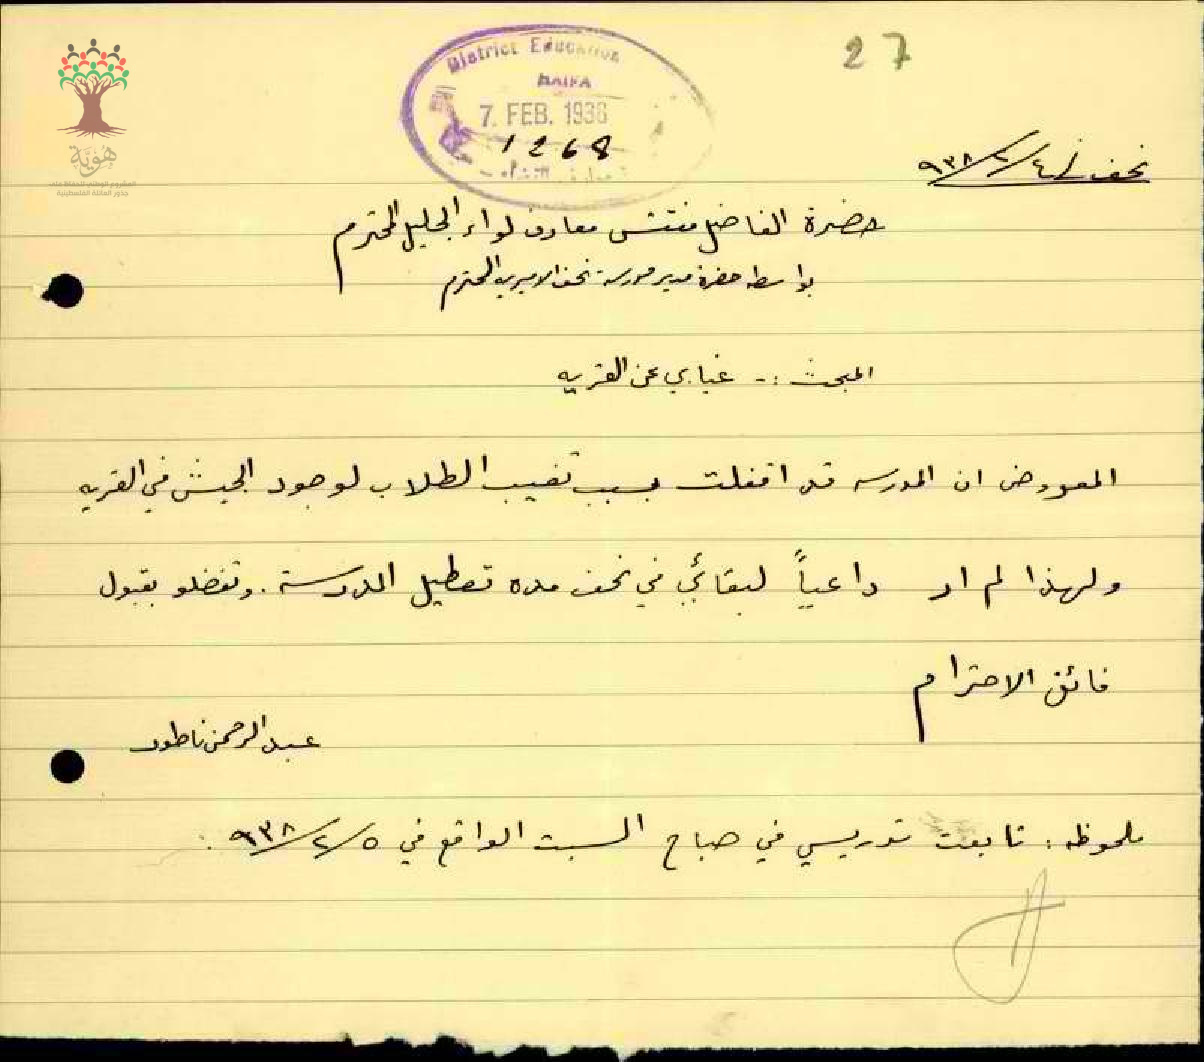 27
District Education
HAIFA
7. FEB. 1938
1268
هوية
المشروع الوطني للحفاظ على
جذور العائلة الفلسطينية
نحف في ٤/٢/٩٣٨
حضرة الفاضل مفتش معارف لواء الجليل المحترم
بواسطة حضرة مدير مدرسة نحف الاميريه المحترم
المبحث :- غيابي عن القريه
المعروض ان المدرسه قد اقفلت بسبب تغيب الطلاب لوجود الجيش في القريه
ولهذا لم ار داعياً لبقائي في نحف مدة تعطيل المدرسة . وتفضلو بقبول
فائق الاحترام
عبد الرحمن ناطور
ملحوظه : تابعت تدريسي في صباح السبت الواقع في ٥/٢/٩٣٨